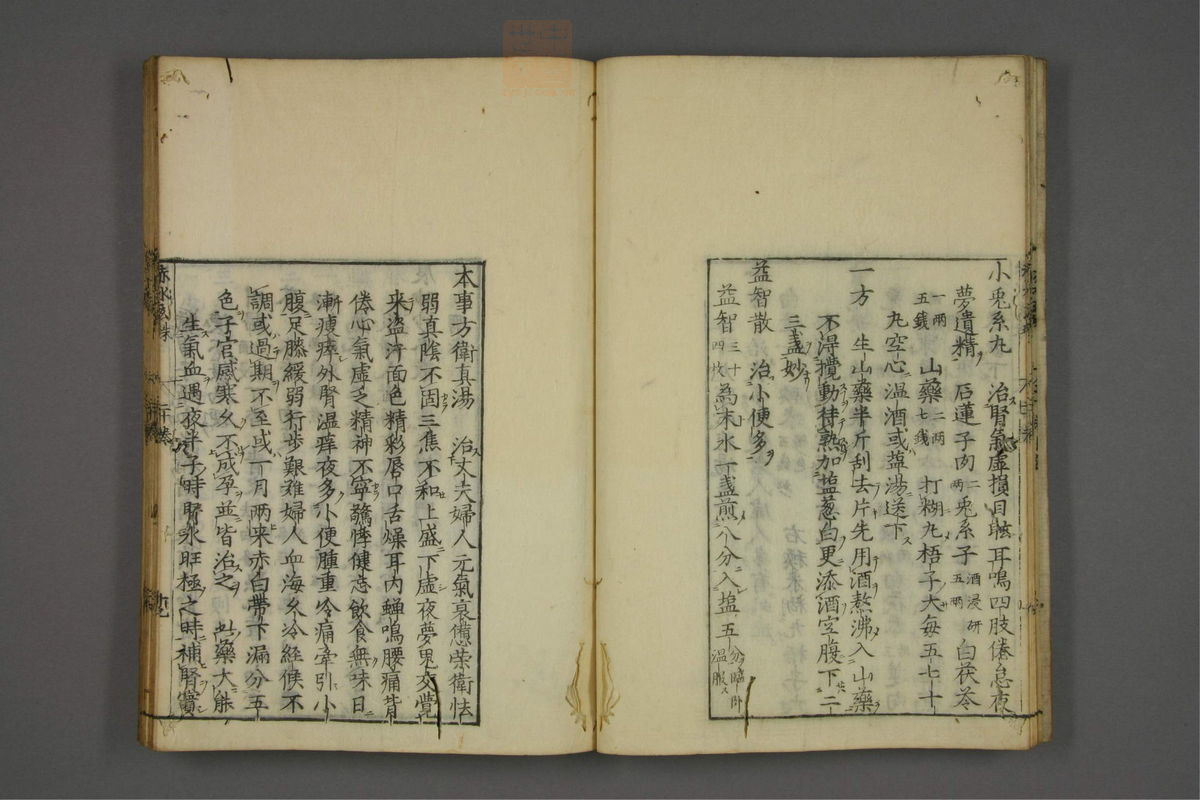 小兎糸丸　治腎氣虚損目眩耳鳴四肢倦怠夜
夢遺精　石蓮子肉二兩兎糸子酒浸研五兩白茯苓
一兩五錢　山藥二兩七錢打糊丸梧子大每五七十
丸空心温酒或塩湯送下
一方　生山藥半斤刮去片先用酒熬沸入山藥
不得攪動待熟加塩葱白更添酒空腹下二
三盞妙
益智散　治小便多
益智三十四枚為末水一盞煎八分入塩五分臨卧温服
本事方衛真湯　治丈夫婦人元氣衰憊榮衛怯
弱真陰不固三焦不和上盛下虚夜夢鬼交覺
来盗汗面色精彩唇口舌燥耳内蝉鳴腰痛背
倦心氣虚乏精神不寧驚悸健忘飲食無味日
漸瘦瘁外腎温痒夜多小便腫重冷痛牽引小
腹足膝緩弱行歩艱难婦人血海久冷経候不
調或過期不至或一月兩来赤白帶下漏分五
色子宫感寒久不成孕並皆治之　此藥大能
生氣血遇夜半子時腎水旺極之時補腎實
赤水玄珠